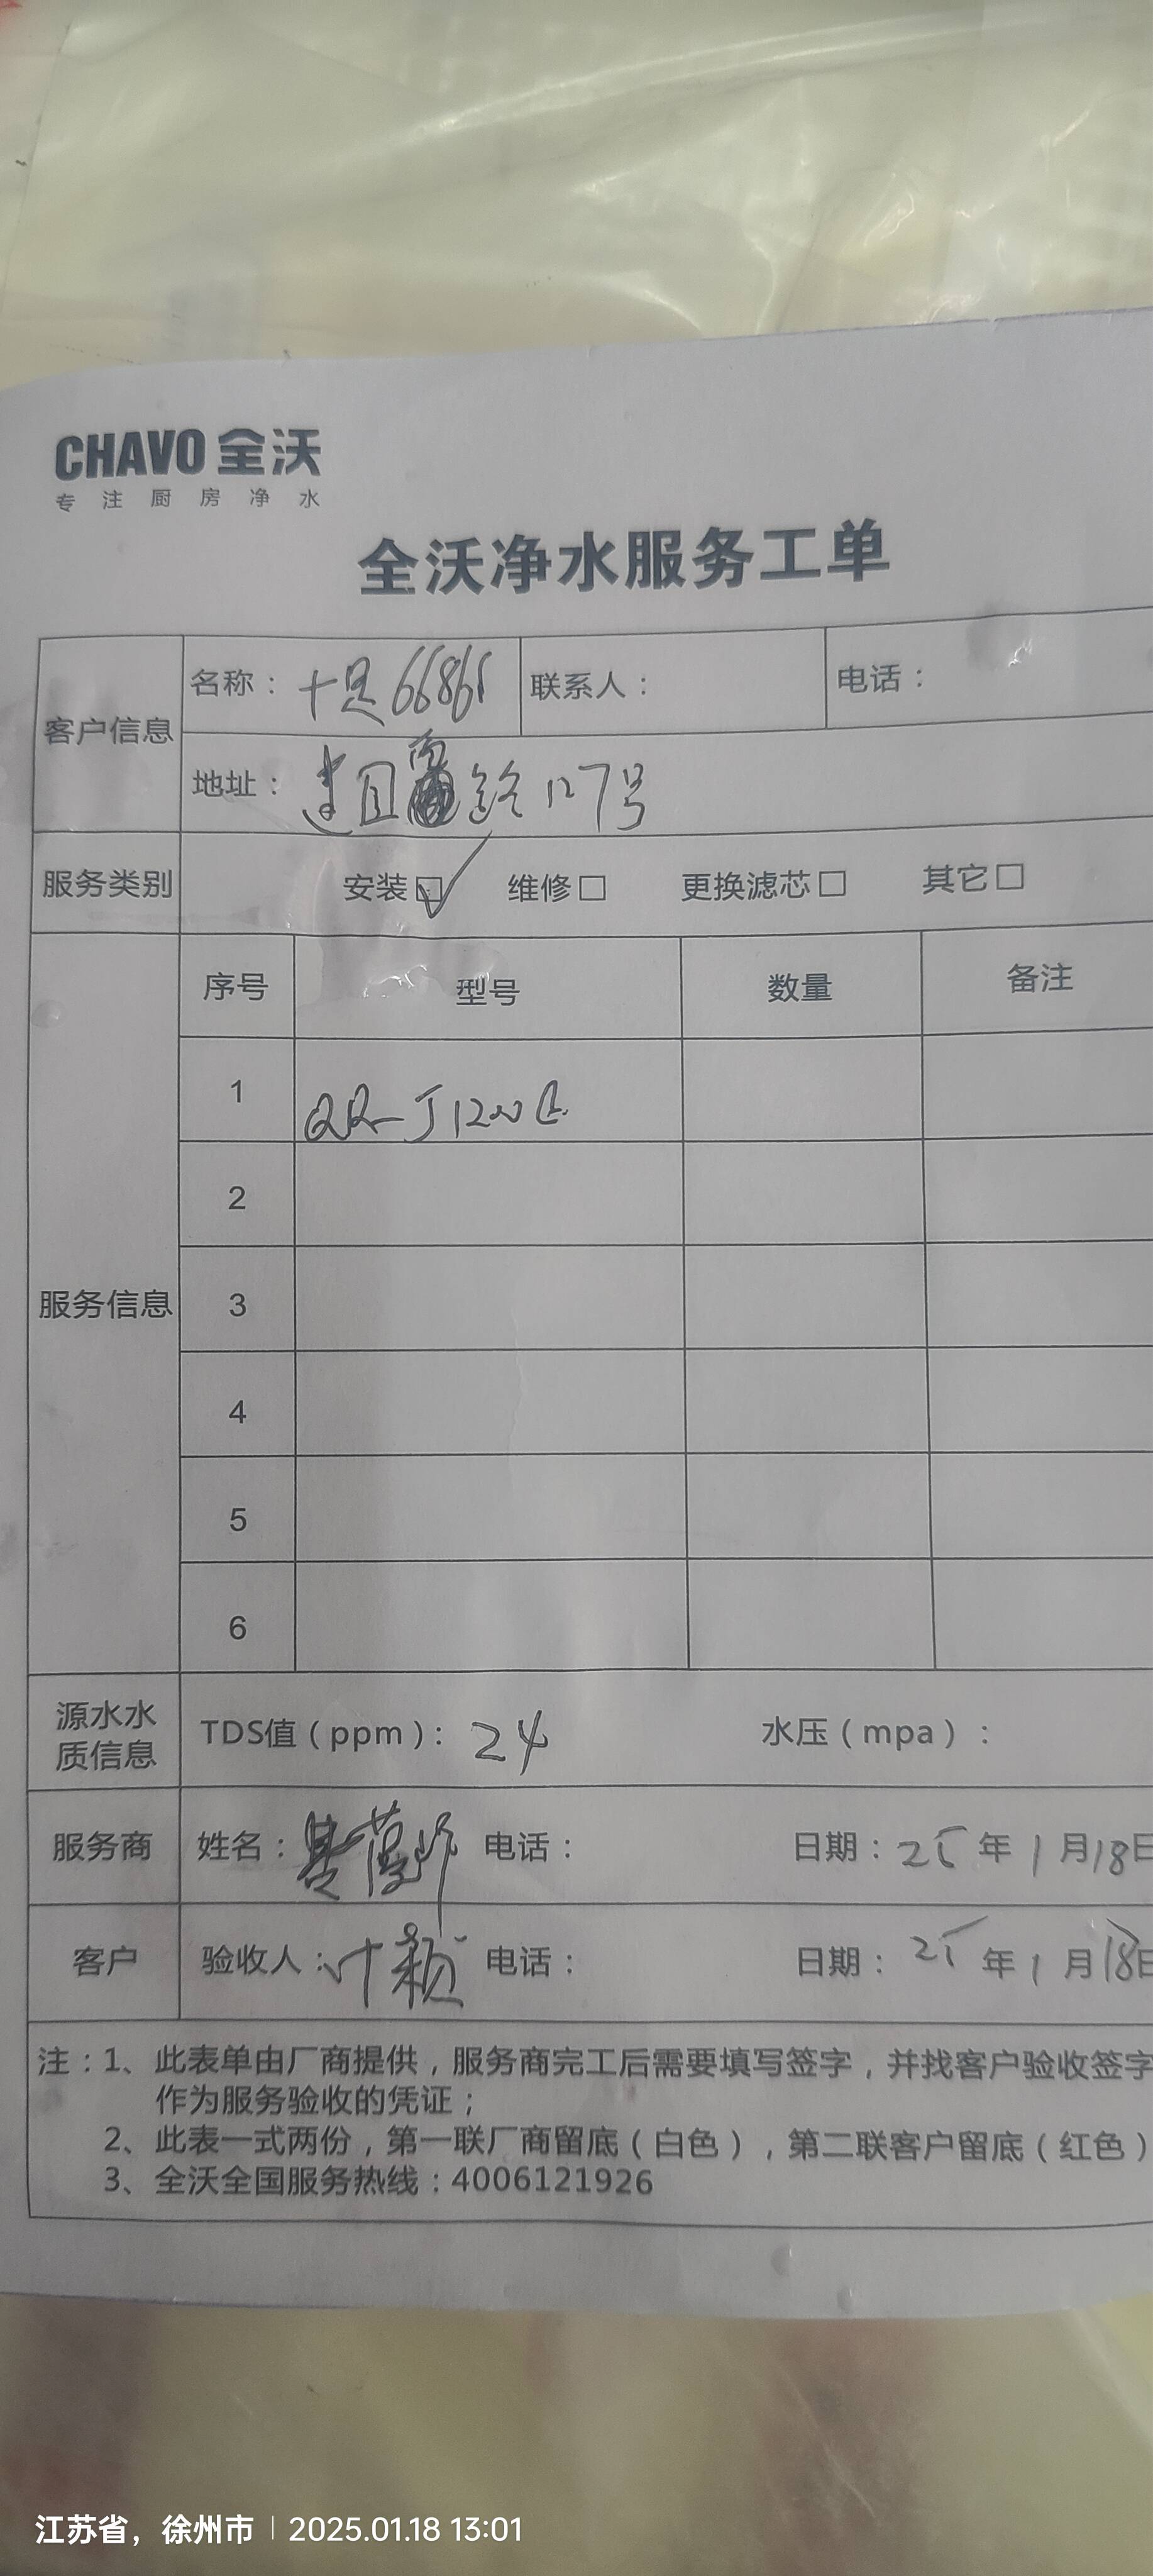 CHAVO 全沃
专注厨房净水
全沃净水服务工单
客户信息
名称：十足66865 联系人： 电话：
地址：建国南路127号
服务类别 安装☑ 维修□ 更换滤芯□ 其它□
服务信息
序号 型号 数量 备注
1 QR-J1200E
2
3
4
5
6
源水水质信息 TDS值（ppm）：24 水压（mpa）：
服务商 姓名： 电话： 日期：25年1月18日
客户 验收人：叶颖 电话： 日期：25年1月18日
注：1、此表单由厂商提供，服务商完工后需要填写签字，并找客户验收签字
作为服务验收的凭证；
2、此表一式两份，第一联厂商留底（白色），第二联客户留底（红色）
3、全沃全国服务热线：4006121926
江苏省，徐州市 | 2025.01.18 13:01